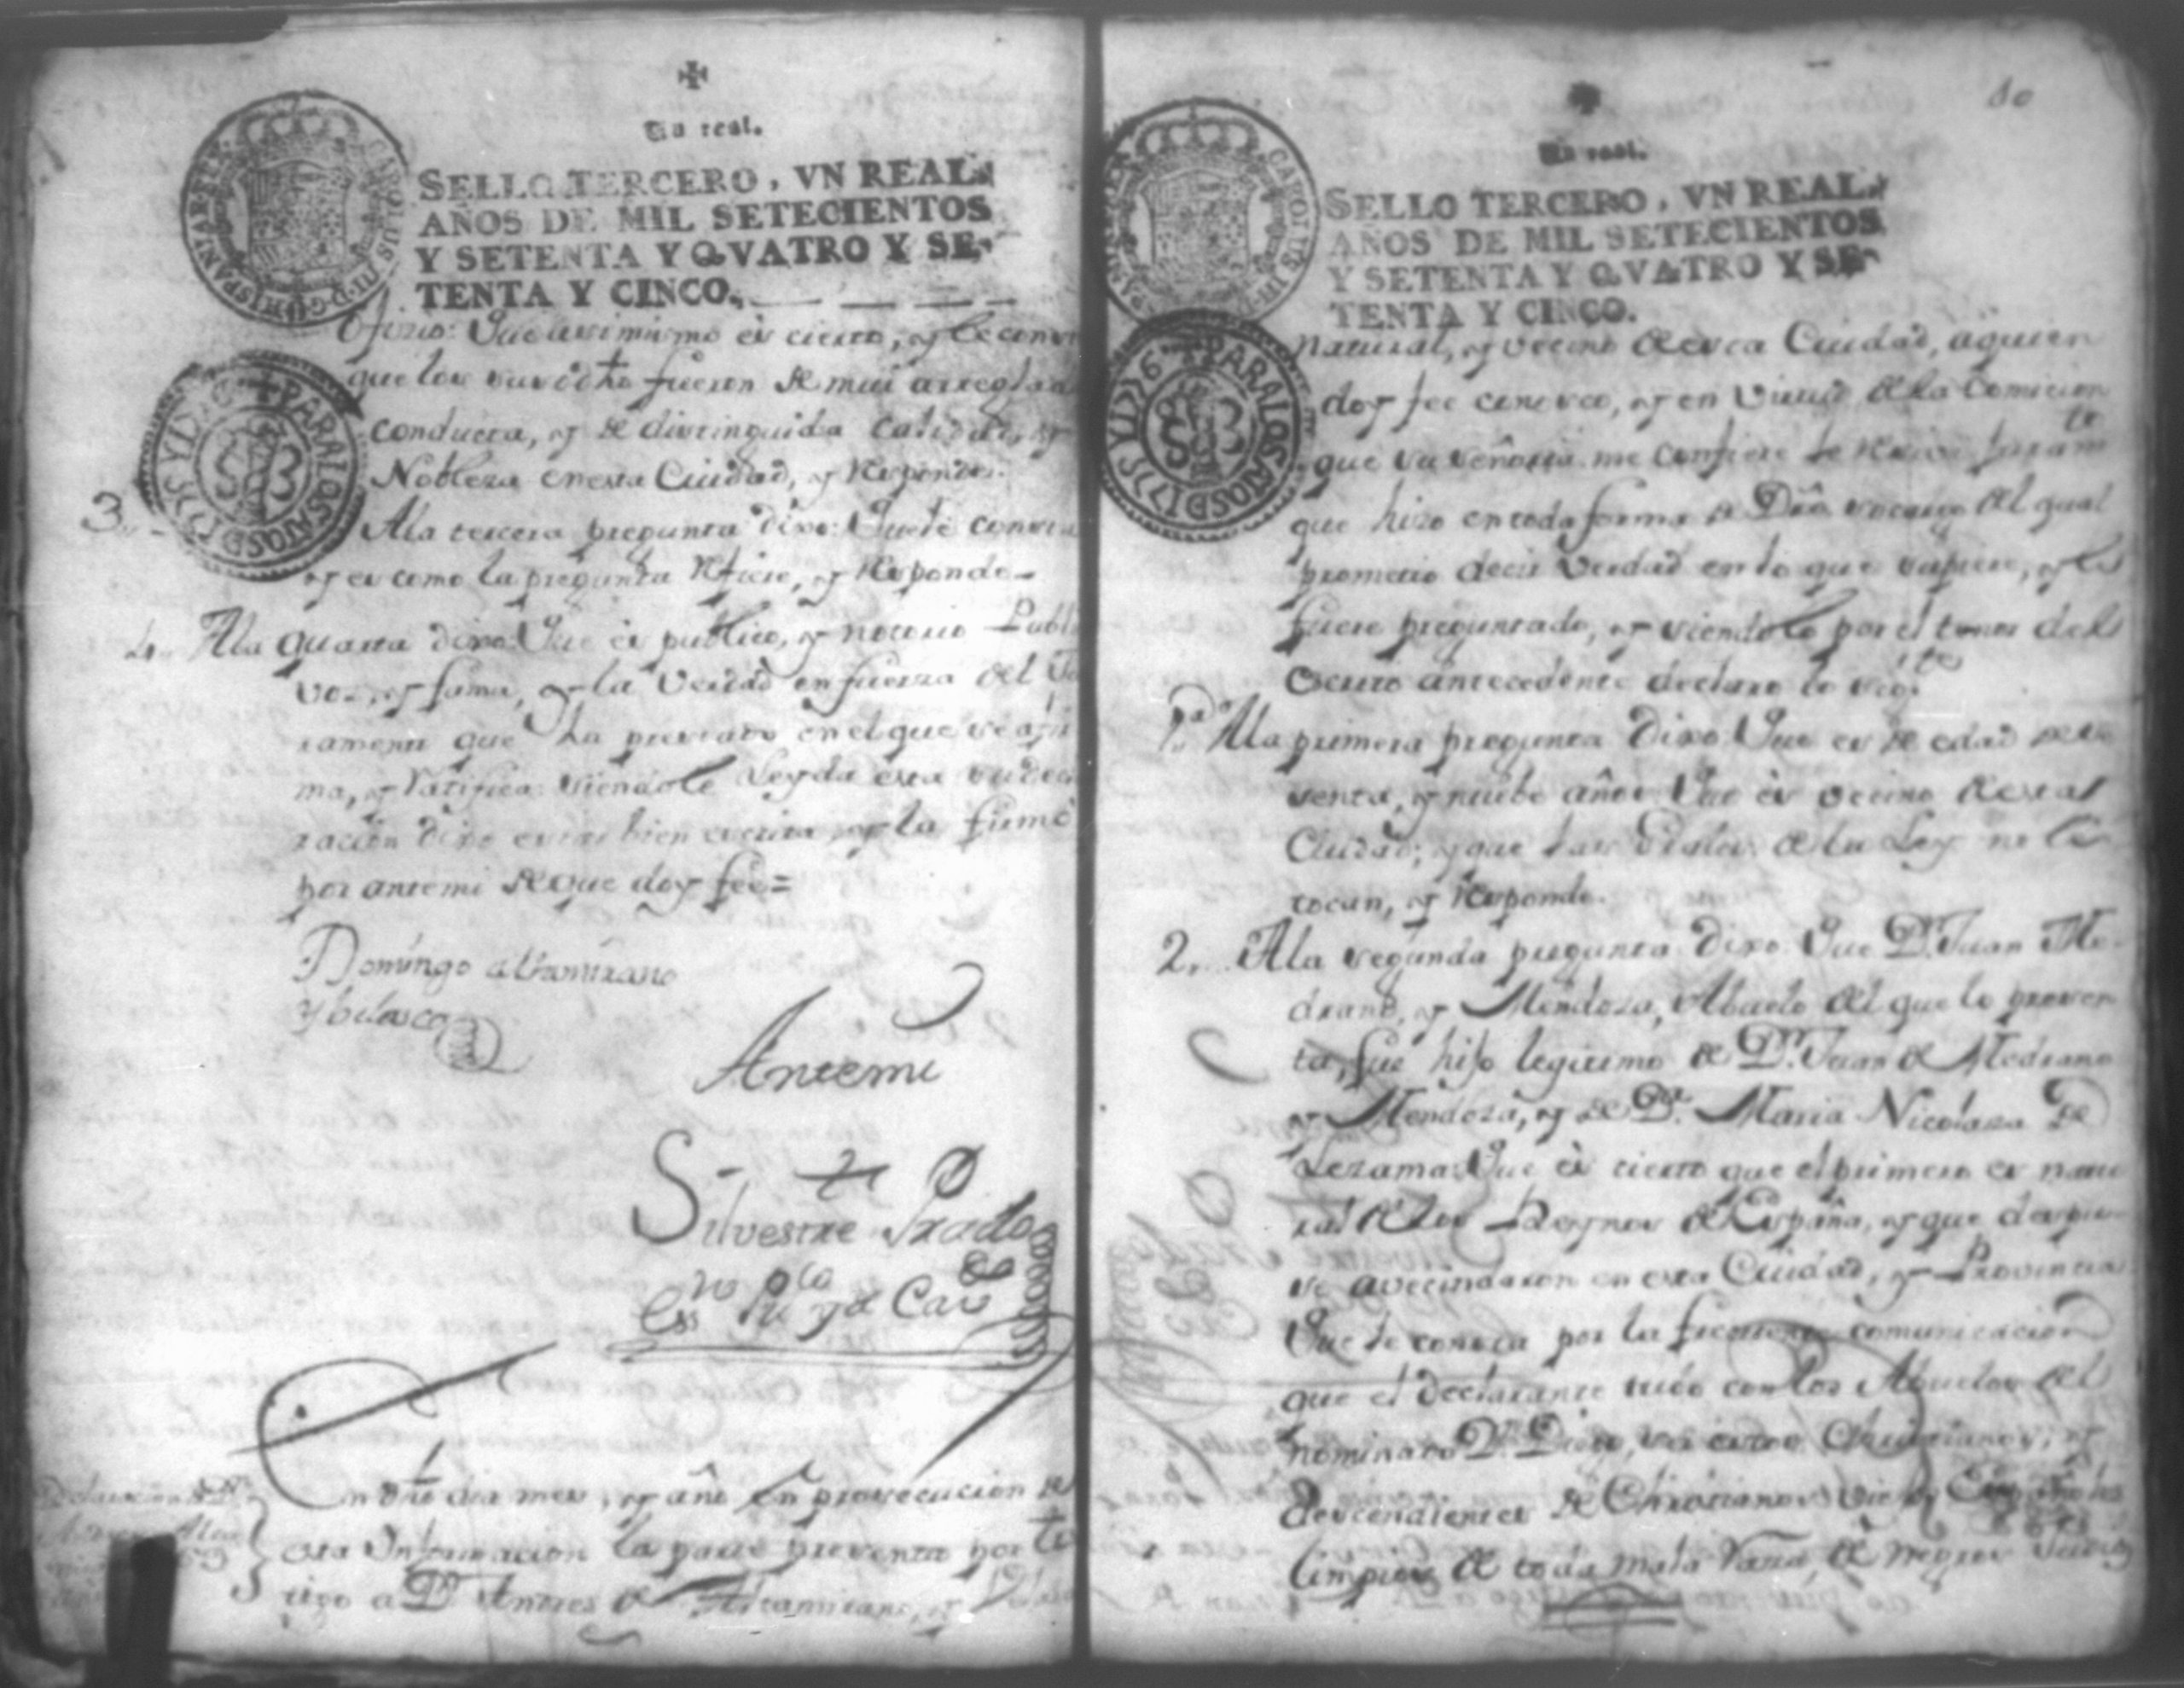 Un real.
SELLO TERCERO, VN REAL
AÑOS DE MIL SETECIENTOS
Y SETENTA Y QVATRO Y SE-
TENTA Y CINCO.
CAROLUS III D G HISPANIAR REX
PARA LOS AÑOS D 1775 Y 1776
Que assimismo es cierto, y le consta
que los susodhos fueron de mui arreglada
conducta, y de distinguida calidad, y
Nobleza en esta Ciudad, y Responde.
3.. A la tercera pregunta dixo: Que le consta
y es como la pregunta refiere, y Responde
4.. A la quarta dixo: Que es publico, y notorio Publ
voz, y fama, y la verdad en fuerza del Ju
ramento que ha prestado en el que se afir
ma, y Ratifica siendole Leyda esta su decla
racion dixo estar bien escrita, y la firmó
por antemi de que doy fee =
Domingo altamirano
y belasco
Antemi
Silvestre Prado
Essno Puco y de Cavdo
En dho dia mes, y año en prosecucion de
esta Informacion la parte presentó por te
tigo a Dn Andres de Altamirano, y Velas
Un real.
SELLO TERCERO, VN REAL
AÑOS DE MIL SETECIENTOS
Y SETENTA Y QVATRO Y SE-
TENTA Y CINCO.
PARA LOS AÑOS D 1775 Y 1776
natural, y vecino de esta Ciudad, a quien
doy fee conosco, y en virtud de la Comicion
que su señoria me confiere le recivi juramto
que hizo en toda forma de Dro so cargo del qual
prometio decir verdad en lo que supiere, y le
fuere preguntado, y siendolo por el tenor del
Escrito antecedente declaro lo sigte
1.. A la primera pregunta dixo: Que es de edad de se
senta, y nuebe años Que es vecino de esta
Ciudad; y que las Grales de la Ley no le
tocan, y Responde.
2.. A la segunda pregunta dixo: Que Dn Juan Me
drano, y Mendoza, Abuelo del que lo presen
ta, fue hijo legitimo de Dn Juan de Medrano
y Mendoza, y de Da Maria Nicolasa de
Lezama: Que es cierto que el primero es natu
ral de los Reynos de España, y que despues
se avecindaron en esta Ciudad, y Provincia
Que le consta por la frecuente comunicacion
que el declarante tubo con los Abuelos del
nominado Dn Diego, Christianos, y
descendientes de Christianos viejos Españoles
limpios de toda mala raza, de negros Judios